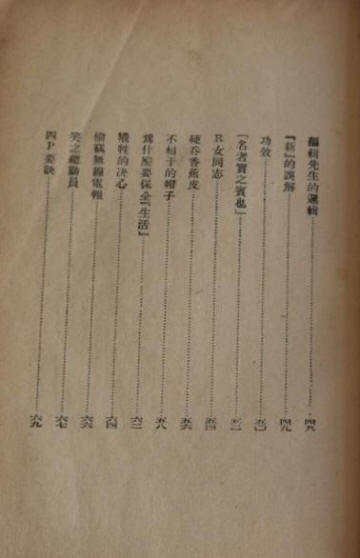 編輯先生的邏輯……四八
『新』的誤解……四九
功效……五〇
『名者實之賓也』……五二
R女同志……五四
硬吞香蕉皮……五五
不相干的帽子……五八
爲什麽要保全『生活』……六二
犧牲的決心……六四
偷竊無線電報……六六
笑之總動員……六七
四P要訣……六九